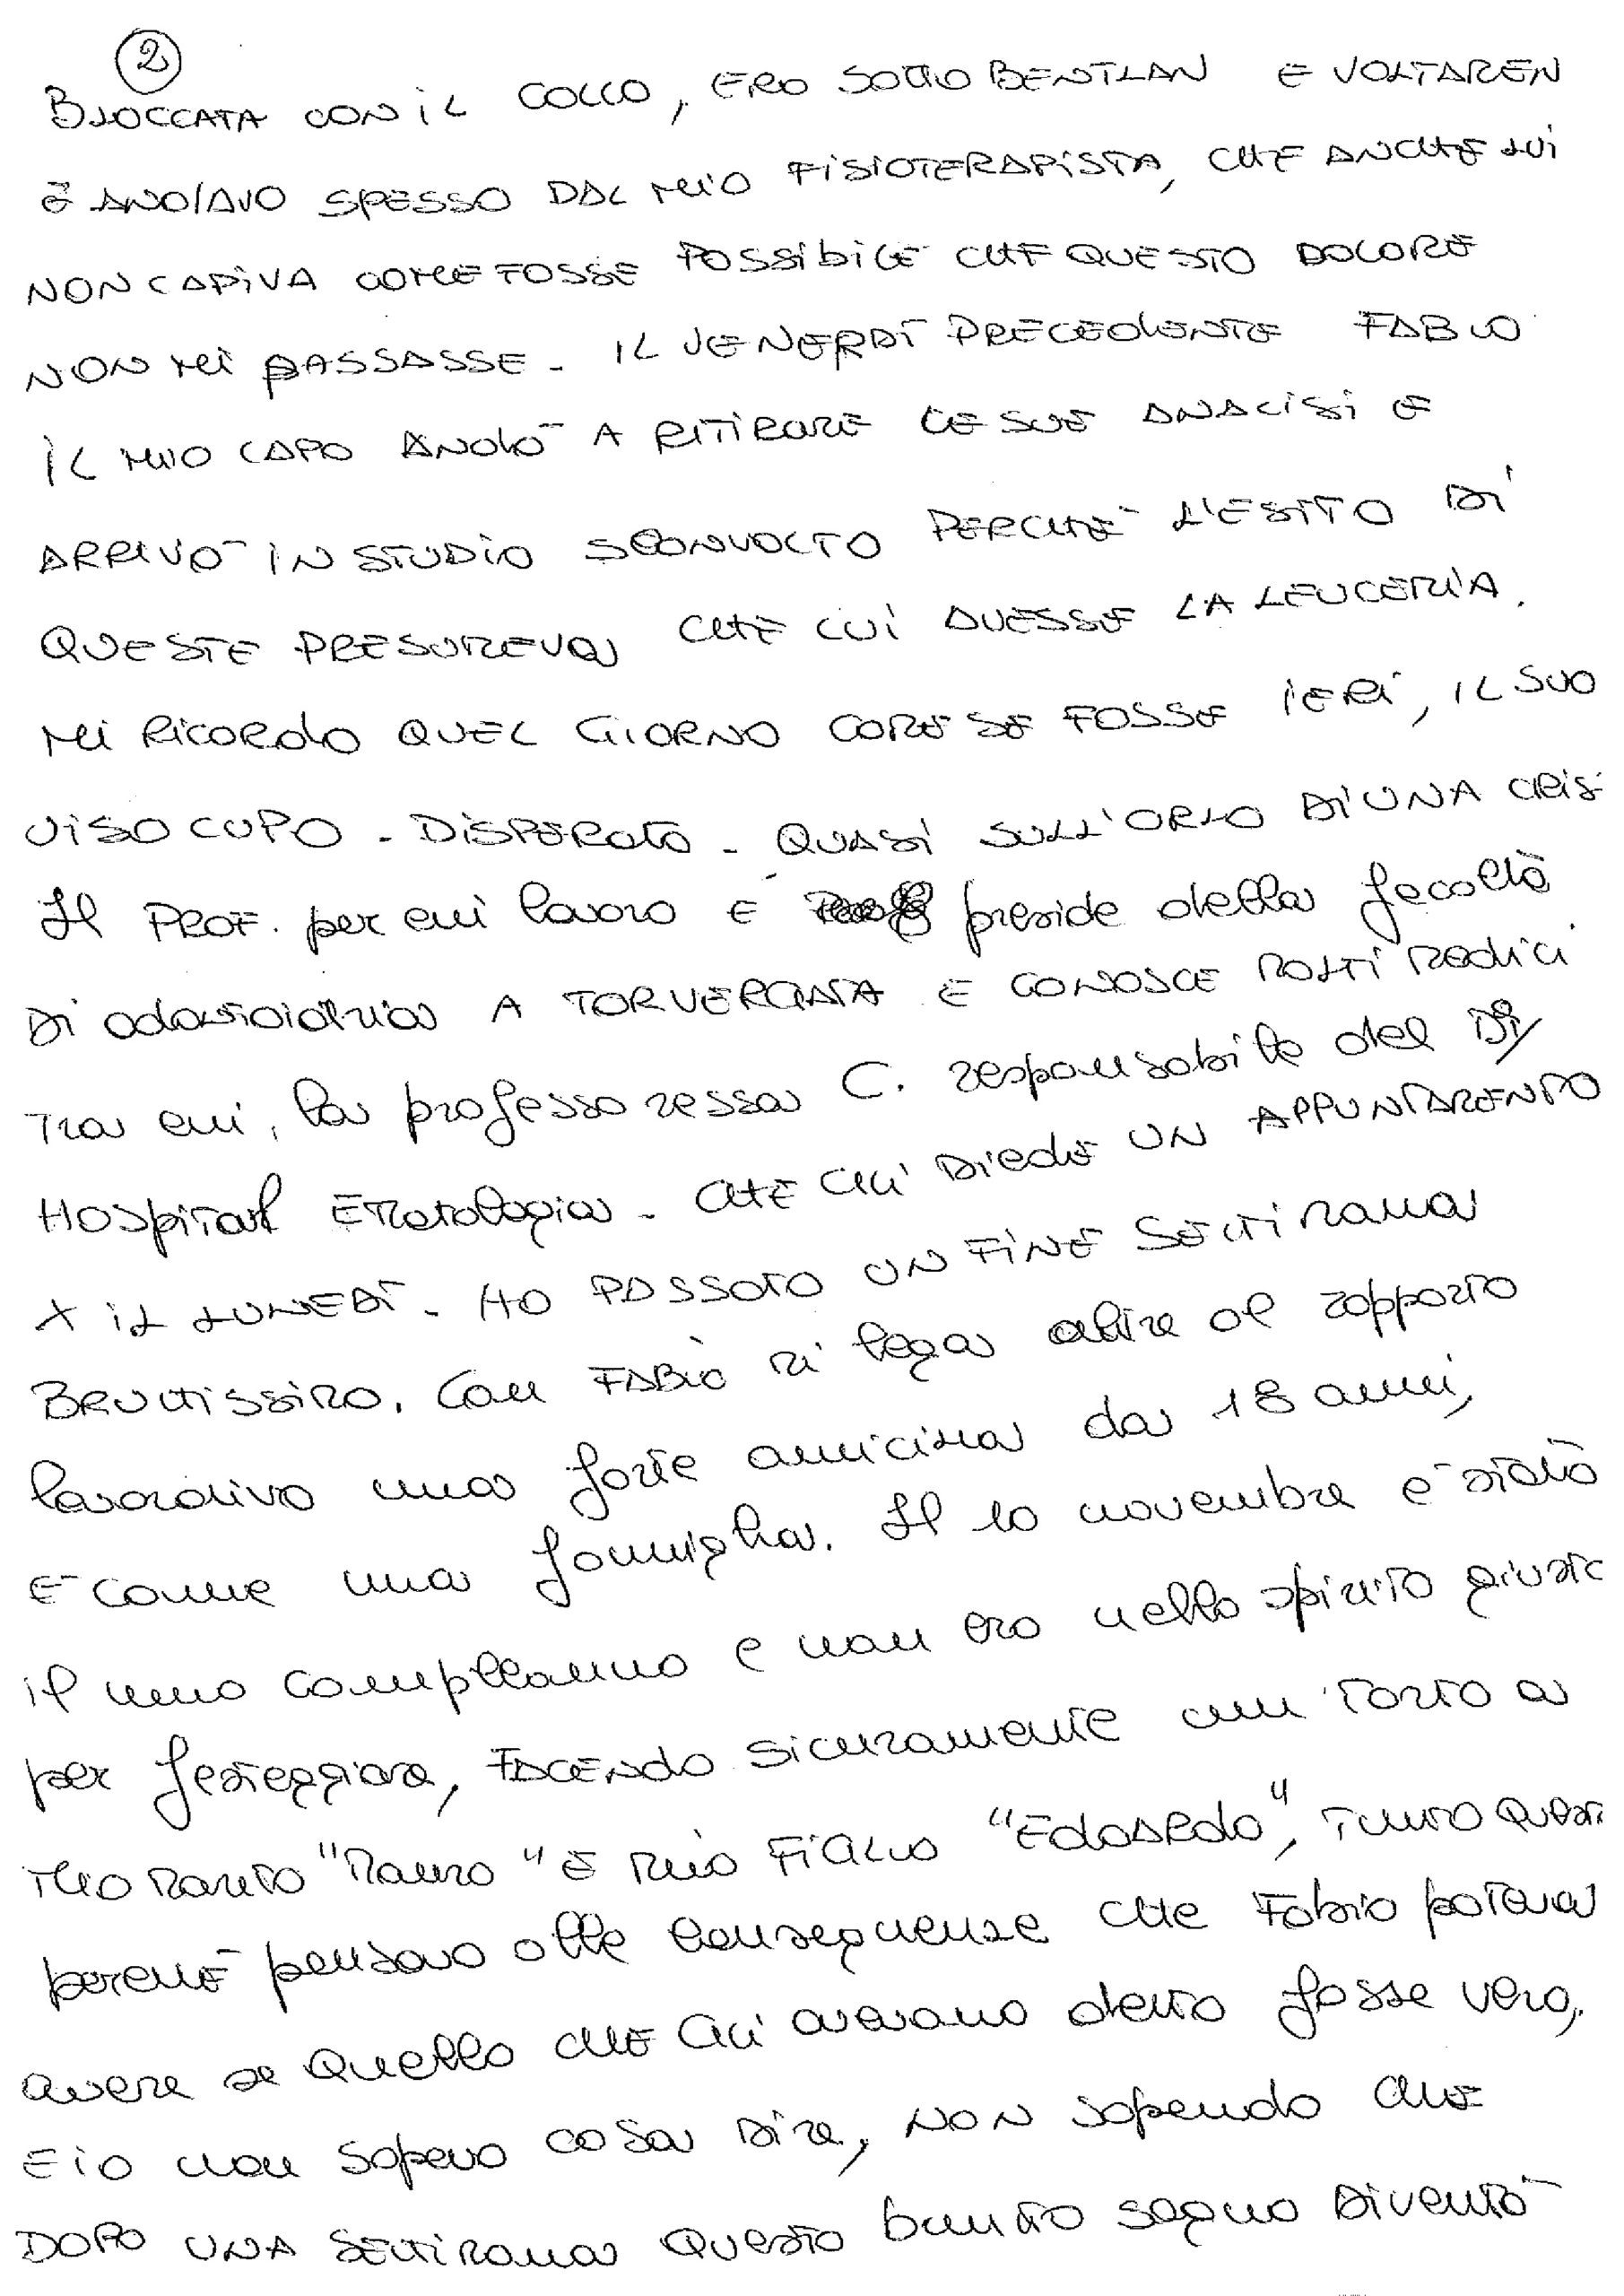 2
BLOCCATA CON IL COLLO, ERO SOTTO BENTLAN E VOLTAREN
E ANDAVO SPESSO DAL MIO FISIOTERAPISTA, CHE ANCHE LUI
NON CAPIVA COME FOSSE POSSIBILE CHE QUESTO DOLORE
NON MI PASSASSE. IL VENERDÌ PRECEDENTE FABIO
IL MIO CAPO ANDÒ A RITIRARE LE SUE ANALISI E
ARRIVÒ IN STUDIO SCONVOLTO PERCHÉ L'ESITO DI
QUESTE PRESUMEVA CHE LUI AVESSE LA LEUCEMIA.
MI RICORDO QUEL GIORNO COME SE FOSSE IERI, IL SUO
VISO CUPO - DISPERATO - QUASI SULL'ORLO DI UNA CRISI
Il PROF. per cui lavoro È preside della facoltà
DI odontoiatria A TORVERGATA E CONOSCE MOLTI Medici
Tra cui, la professoressa C. responsabile del DY
HOspital EMatologia - CHE GLI DIEDE UN APPUNTAMENTO
X IL LUNEDÌ - HO PASSATO UN FINE SETTIMANA
BRUTTISSIMO, Con FABIO mi lega oltre al rapporto
lavorativo una forte amicizia da 18 anni,
E come una famiglia. Il 10 novembre è stato
il mio compleanno e non ero nello spirito giusto
per festeggiare, FACENDO sicuramente un torto a
MIO MARITO "Mauro" E MIO FIGLIO "EdoARdo", TUTTO QUESTO
perché pensavo alle conseguenze che Fabio poteva
avere se Quello CHE Gli avevano detto fosse vero,
E IO non sapevo cosa DIRE, NON sapendo CHE
DOPO UNA SETTIMANA QUESTO brutto sogno DIVENTÒ